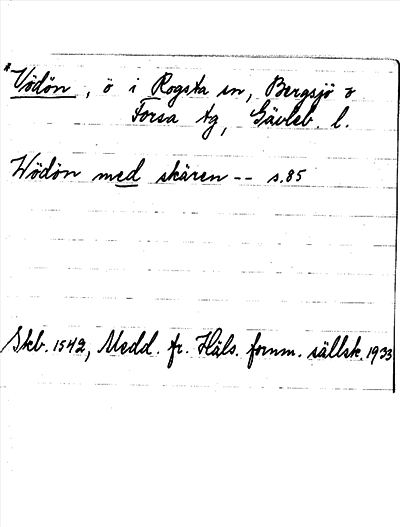 *Vödön, ö i Rogsta sn, Bergsjö o
Forsa tg, Gävleb. l.
Wödön med skären -- s.85
Skb. 1542, Medd. fr. Häls. fornm. sällsk. 1933